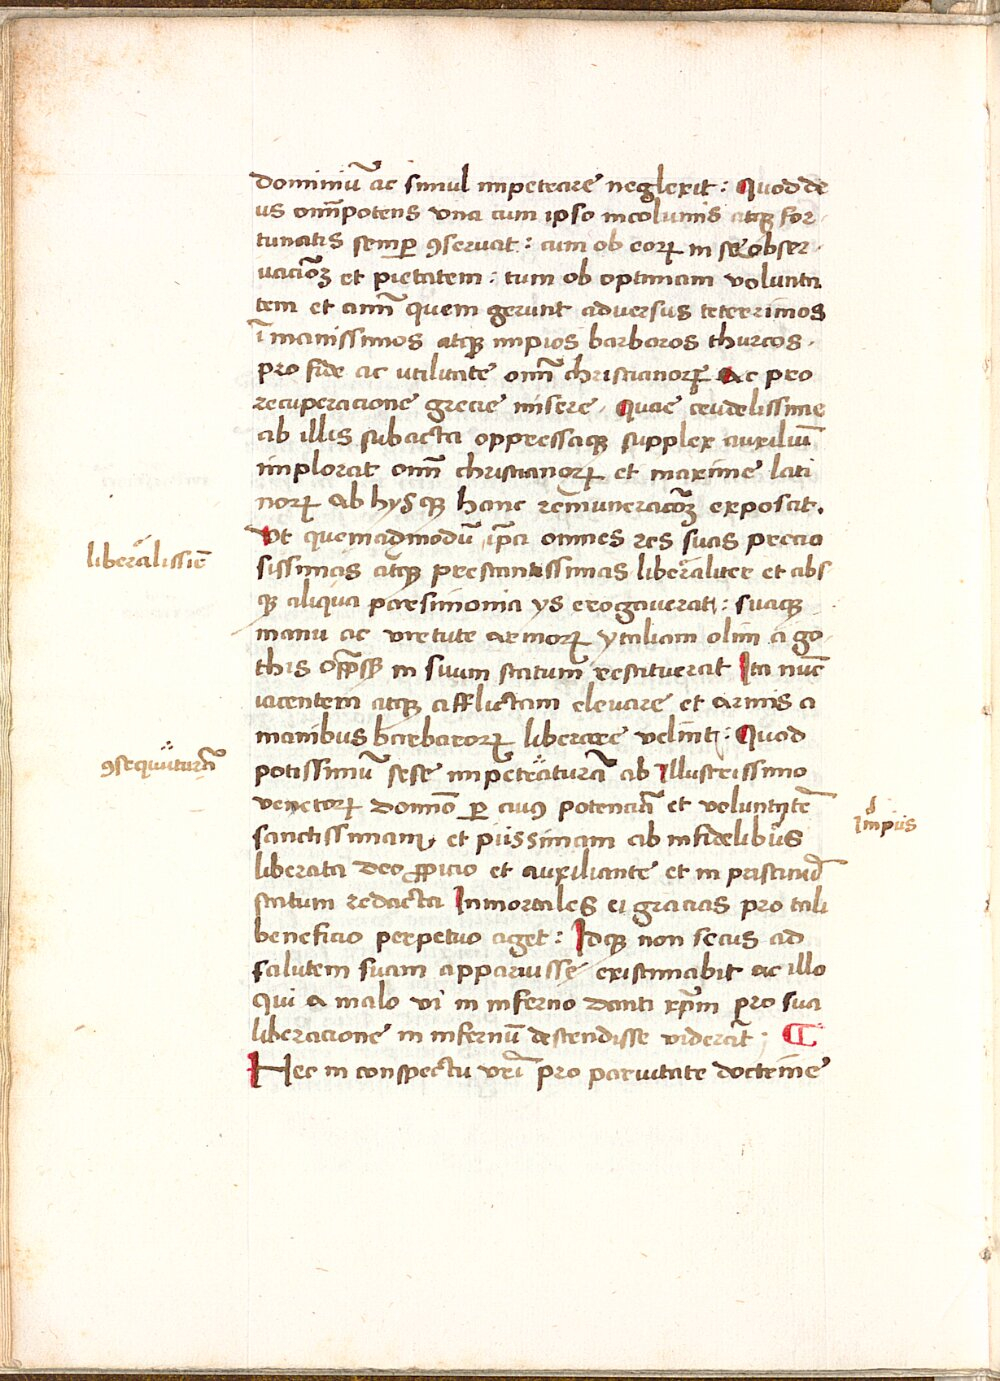 dominiū ac simul impetrare neglexit: Quod de
us om̄potens vna cum ipso incolumis atqꝫ for
tunatis semꝑ ꝯseruat: cum ob eoꝝ in se obser
uaciōꝫ et pietatem: tum ob optimam volunta
tem et anim̄ quem gerunt aduersus teterrimos
īmanissimos atqꝫ impios barbaros thurcos.
pro fide ac utilitate om̄ christianoꝝ Ac pro
recuperacione grecie misere. Quae crudelissime
ab illis subacta oppressaqꝫ supplex auxiliū
implorat om̄ christianoꝝ et maxime lati
noꝝ Ab hysqꝫ hanc remuneraciōꝫ exposcit.
Vt quemadmodū ip̄a omnes res suas precio
liberalissiē
sissimas atqꝫ prestantissimas liberaliter et abs
qꝫ aliqua parsimonia ys erogauerat: suaqꝫ
manu ac virtute armoꝝ ytaliam olim a go
this opp̄sꝫ in suum statum restituerat Ita nūc
iacentem atqꝫ afflictam eleuare et armis a
manibus barbaroꝝ liberare velint: Quod
ꝯsequuturā
potissimū sese impetraturā ab Illustrissimo
venetoꝝ domīo ꝑ cuiꝰ potenciā et voluntātē
Imp̄iis
sanctissimam, et piissimam ab infidelibus
liberata deo ꝓpicio et auxiliante et in pristinū
statum redacta Inmortales ei gracias pro tali
beneficio perpetuo aget: Idqꝫ non secus ad
salutem suam apparuisse existimabit ac illo
qui a malo vi in inferno danti xp̄m pro sua
liberacione in infernū descendisse viderāt; ¶
Hec in conspectu vr̄i pro paruitate doctrine